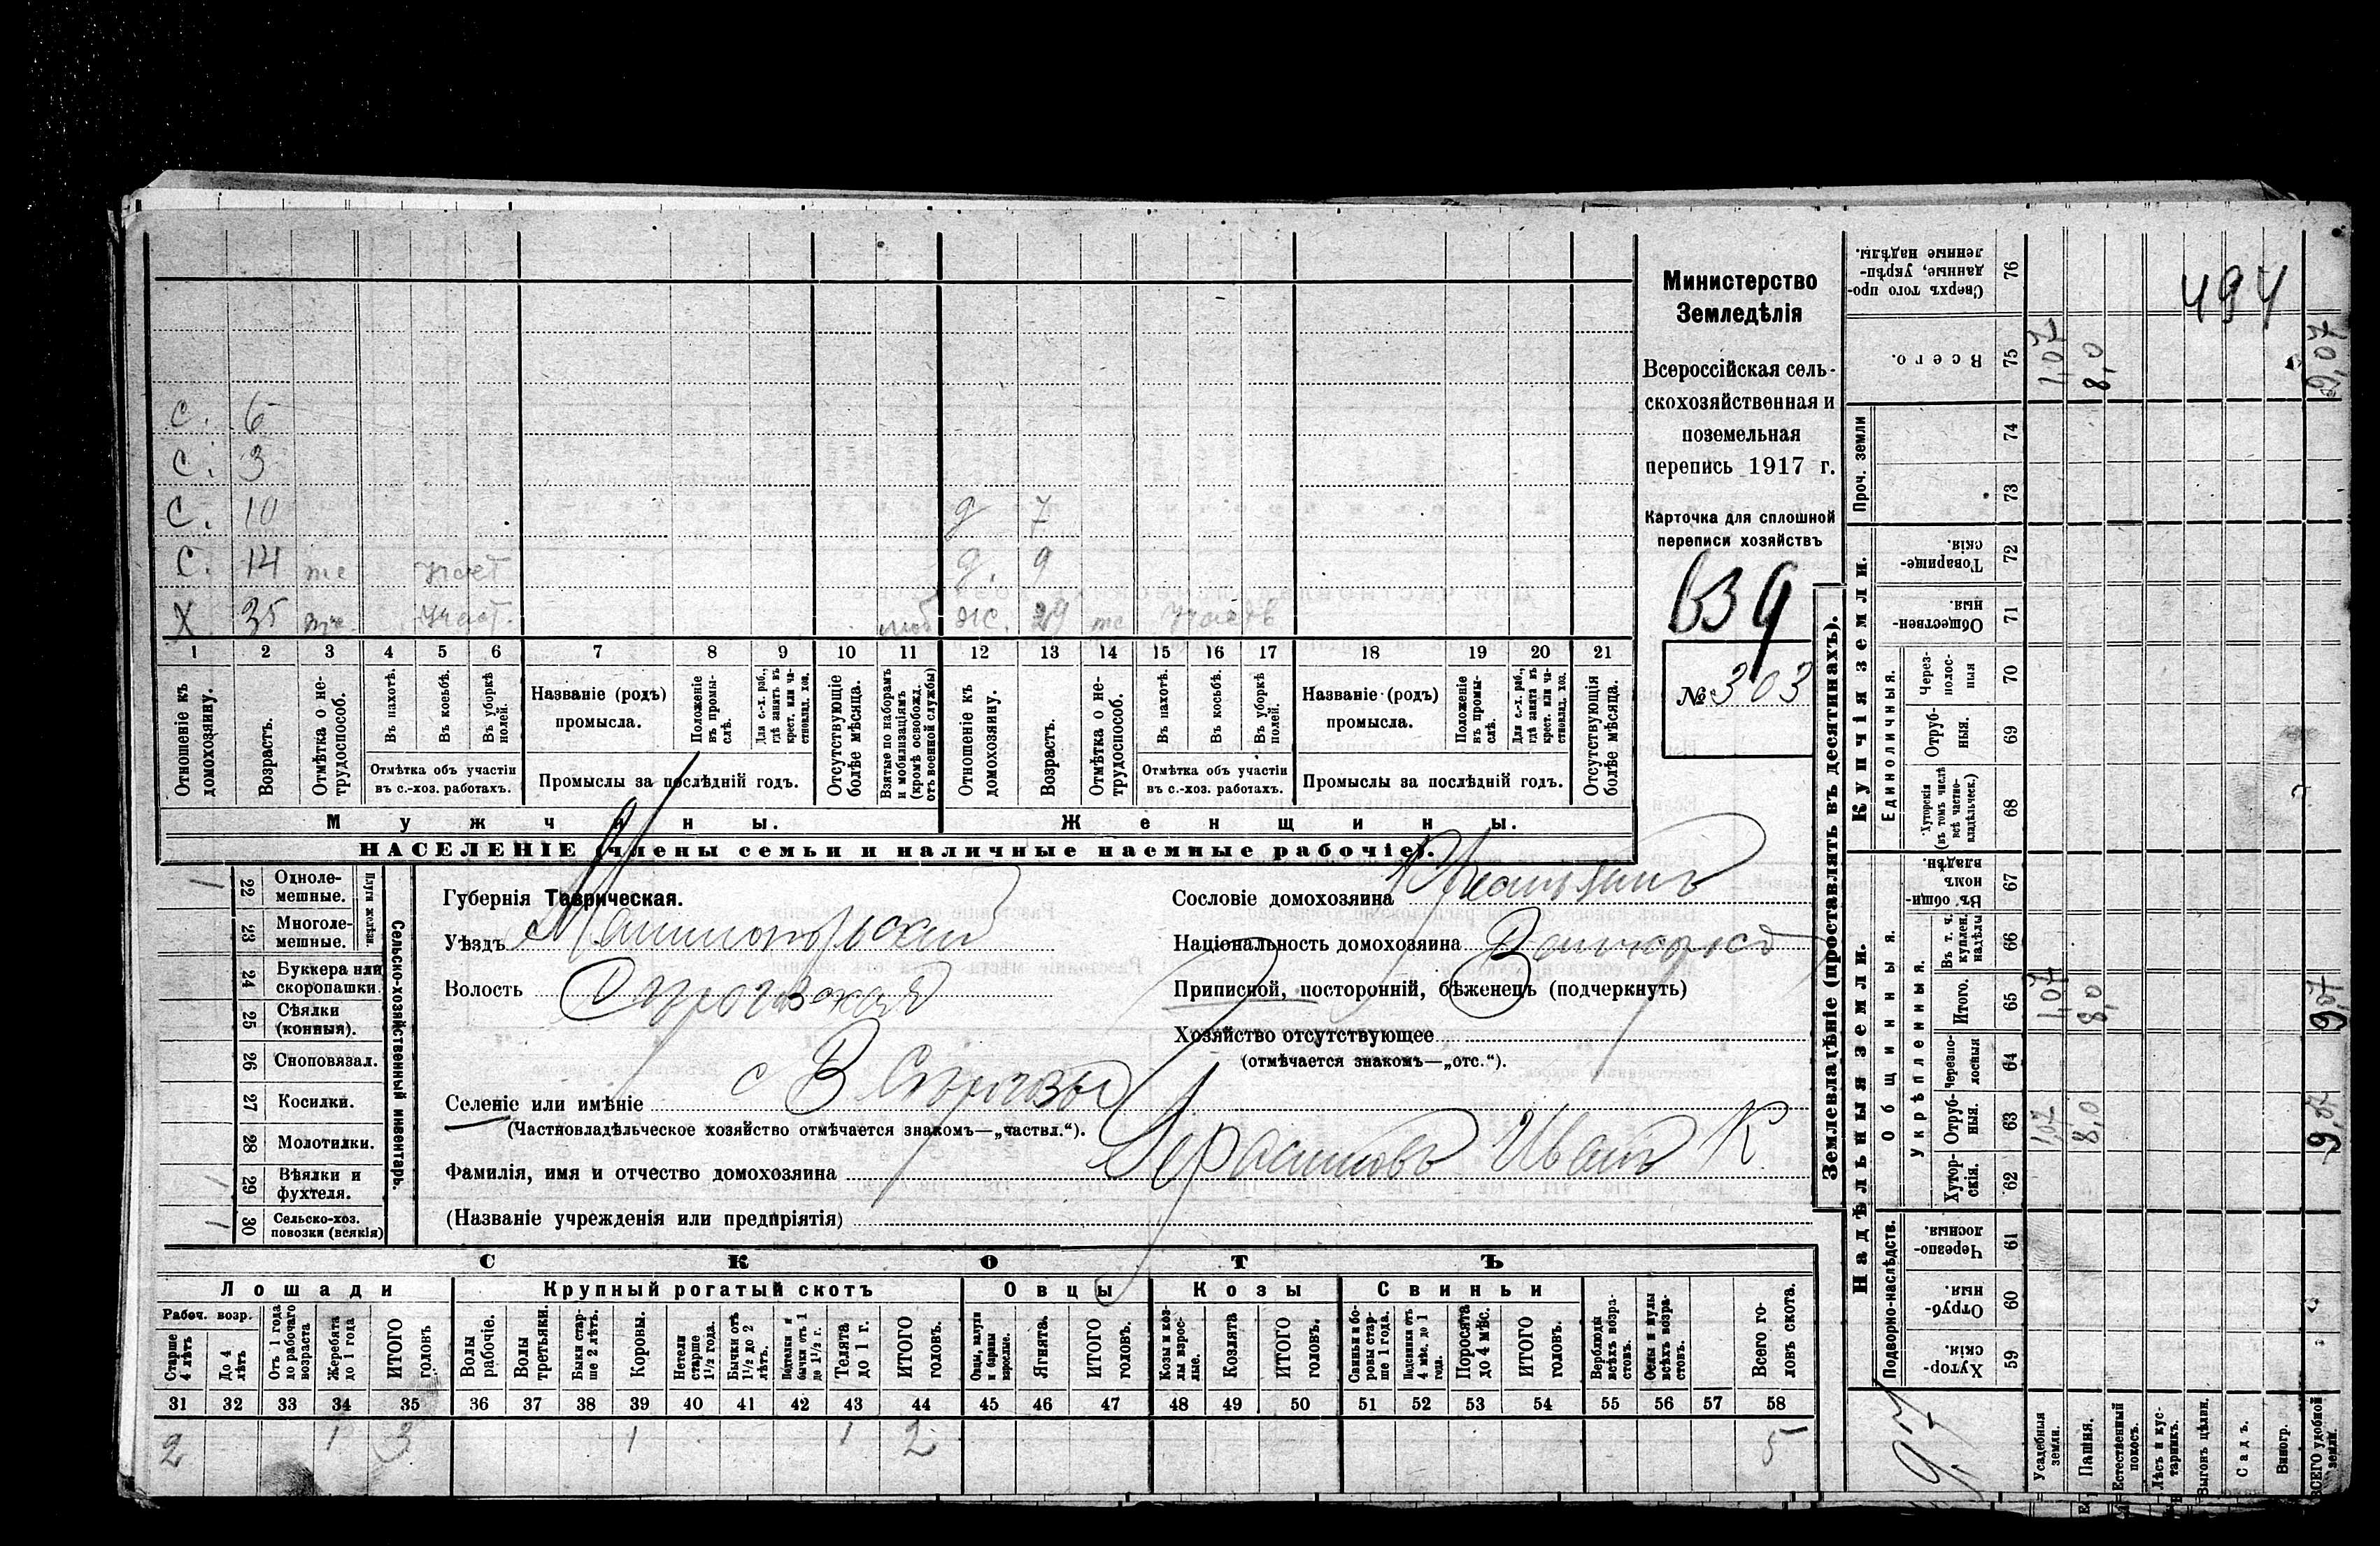 Министерство
Земледѣлія
Всероссійская сель-
скохозяйственная и
поземельная
перепись 1917 г.
Карточка для сплошной
переписи хозяйствъ
639
№ 303
494
С. 6
С. 3
С. 10 д 7
С. 14 участ д. 9
Х 35 участ. ж. 29
1 2 3 4 5 6 7 8 9 10 11 12 13 14 15 16 17 18 19 20 21
Отношеніе къ домохозяину.
Возрастъ.
Отмѣтка о не-трудоспособ.
Въ пахотѣ.
Въ косьбѣ.
Въ уборкѣ полей.
Отмѣтка объ участіи
въ с.-хоз. работахъ.
Названіе (родъ)
промысла.
Положеніе въ промы-слѣ.
Для с.-х. раб., гдѣ занятъ въ крест. или ча-стновлад. хоз.
Промыслы за послѣдній годъ.
Отсутствующіе болѣе мѣсяца.
Взятые по наборамъ и мобилизаціямъ (кромѣ освобожд. отъ военной службы)
Отношеніе къ домохозяину.
Возрастъ.
Отмѣтка о не-трудоспособ.
Въ пахотѣ.
Въ косьбѣ.
Въ уборкѣ полей.
Отмѣтка объ участіи
въ с.-хоз. работахъ.
Названіе (родъ)
промысла.
Положеніе въ промы-слѣ.
Для с.-х. раб., гдѣ занятъ въ крест. или ча-стновлад. хоз.
Промыслы за послѣдній годъ.
Отсутствующія болѣе мѣсяца.
Мужчины. Женщины.
НАСЕЛЕНІЕ (члены семьи и наличные наемные рабочіе).
Сельско-хозяйственный инвентарь.
Плуги желѣзн.
1 22 Одноле-мешные.
23 Многоле-мешные.
24 Буккера или скоропашки.
25 Сѣялки (конныя).
26 Сноповязал.
27 Косилки.
28 Молотилки.
1 29 Вѣялки и фухтеля.
1 30 Сельско-хоз. повозки (всякія)
Губернія Таврическая.
Уѣздъ Мелитопольскій
Волость Сѣрогозская
Селеніе или имѣніе с В Сѣрогозы
(Частновладѣльческое хозяйство отмѣчается знакомъ—„частвл.“).
Фамилія, имя и отчество домохозяина Герасимовъ Иванъ К
(Названіе учрежденія или предпріятія)
Сословіе домохозяина
Національность домохозяина
Приписной, посторонній, бѣженецъ (подчеркнуть)
Хозяйство отсутствующее
(отмѣчается знакомъ—„отс.“).
СКОТЪ
Лошади Крупный рогатый скотъ Овцы Козы Свиньи
Рабоч. возр.
Старше 4 лѣтъ
До 4 лѣтъ
Отъ 1 года до рабочаго возраста
Жеребята до 1 года
ИТОГО головъ
Волы рабочіе.
Волы третьяки.
Быки стар-ше 2 лѣтъ.
Коровы.
Нетели старше 1½ года.
Бычки отъ 1½ до 2 лѣтъ.
Подтелки и бычки отъ 1 до 1½ г.
Телята до 1 г.
ИТОГО головъ.
Овцы, валухи и бараны взрослые.
Ягнята.
ИТОГО головъ.
Козы и коз-лы взрос-лые.
Козлята
ИТОГО головъ.
Свиньи и бо-ровы стар-ше 1 года.
Подсвинки отъ 4 мѣс. до 1 года.
Поросята до 4 мѣс.
ИТОГО головъ.
Верблюды всѣхъ возра-стовъ.
Ослы и мулы всѣхъ возра-стовъ.
Всего го-ловъ скота.
31 32 33 34 35 36 37 38 39 40 41 42 43 44 45 46 47 48 49 50 51 52 53 54 55 56 57 58
2 1 3 1 1 2 5
Землевладѣніе (проставлять въ десятинахъ).
Надѣльныя земли. Купчія земли. Проч. земли
Подворно-наслѣдств.
Общинныя.
Укрѣпленныя.
Единоличныя.
59 Хутор-скія.
60 Отруб-ныя.
61 Черезпо-лосныя.
62 Хутор-скія.
63 Отруб-ныя. 1,07 8,0 9,07
64 Черезпо-лосныя
65 Итого. 1,07 8,0 9,07
66 Въ т. ч. куплен. надѣлы
67 Въ общин-номъ владѣн.
68 Хуторскія (въ томъ числѣ всѣ частно-владѣльческ.)
69 Отруб-ныя.
70 Через-полос-ныя
71 Обществен-ныя.
72 Товарище-скія.
73
74
75 Всего. 1,07 8,0 9,07
76 Сверхъ того про-данные, укрѣп-ленные надѣлы.
Усадебныя земли.
Пашня.
Естественный покосъ.
Лѣсъ и кус-тарникъ.
Выгонъ цѣлин.
Садъ.
Виногр.
ВСЕГО удобной земли.